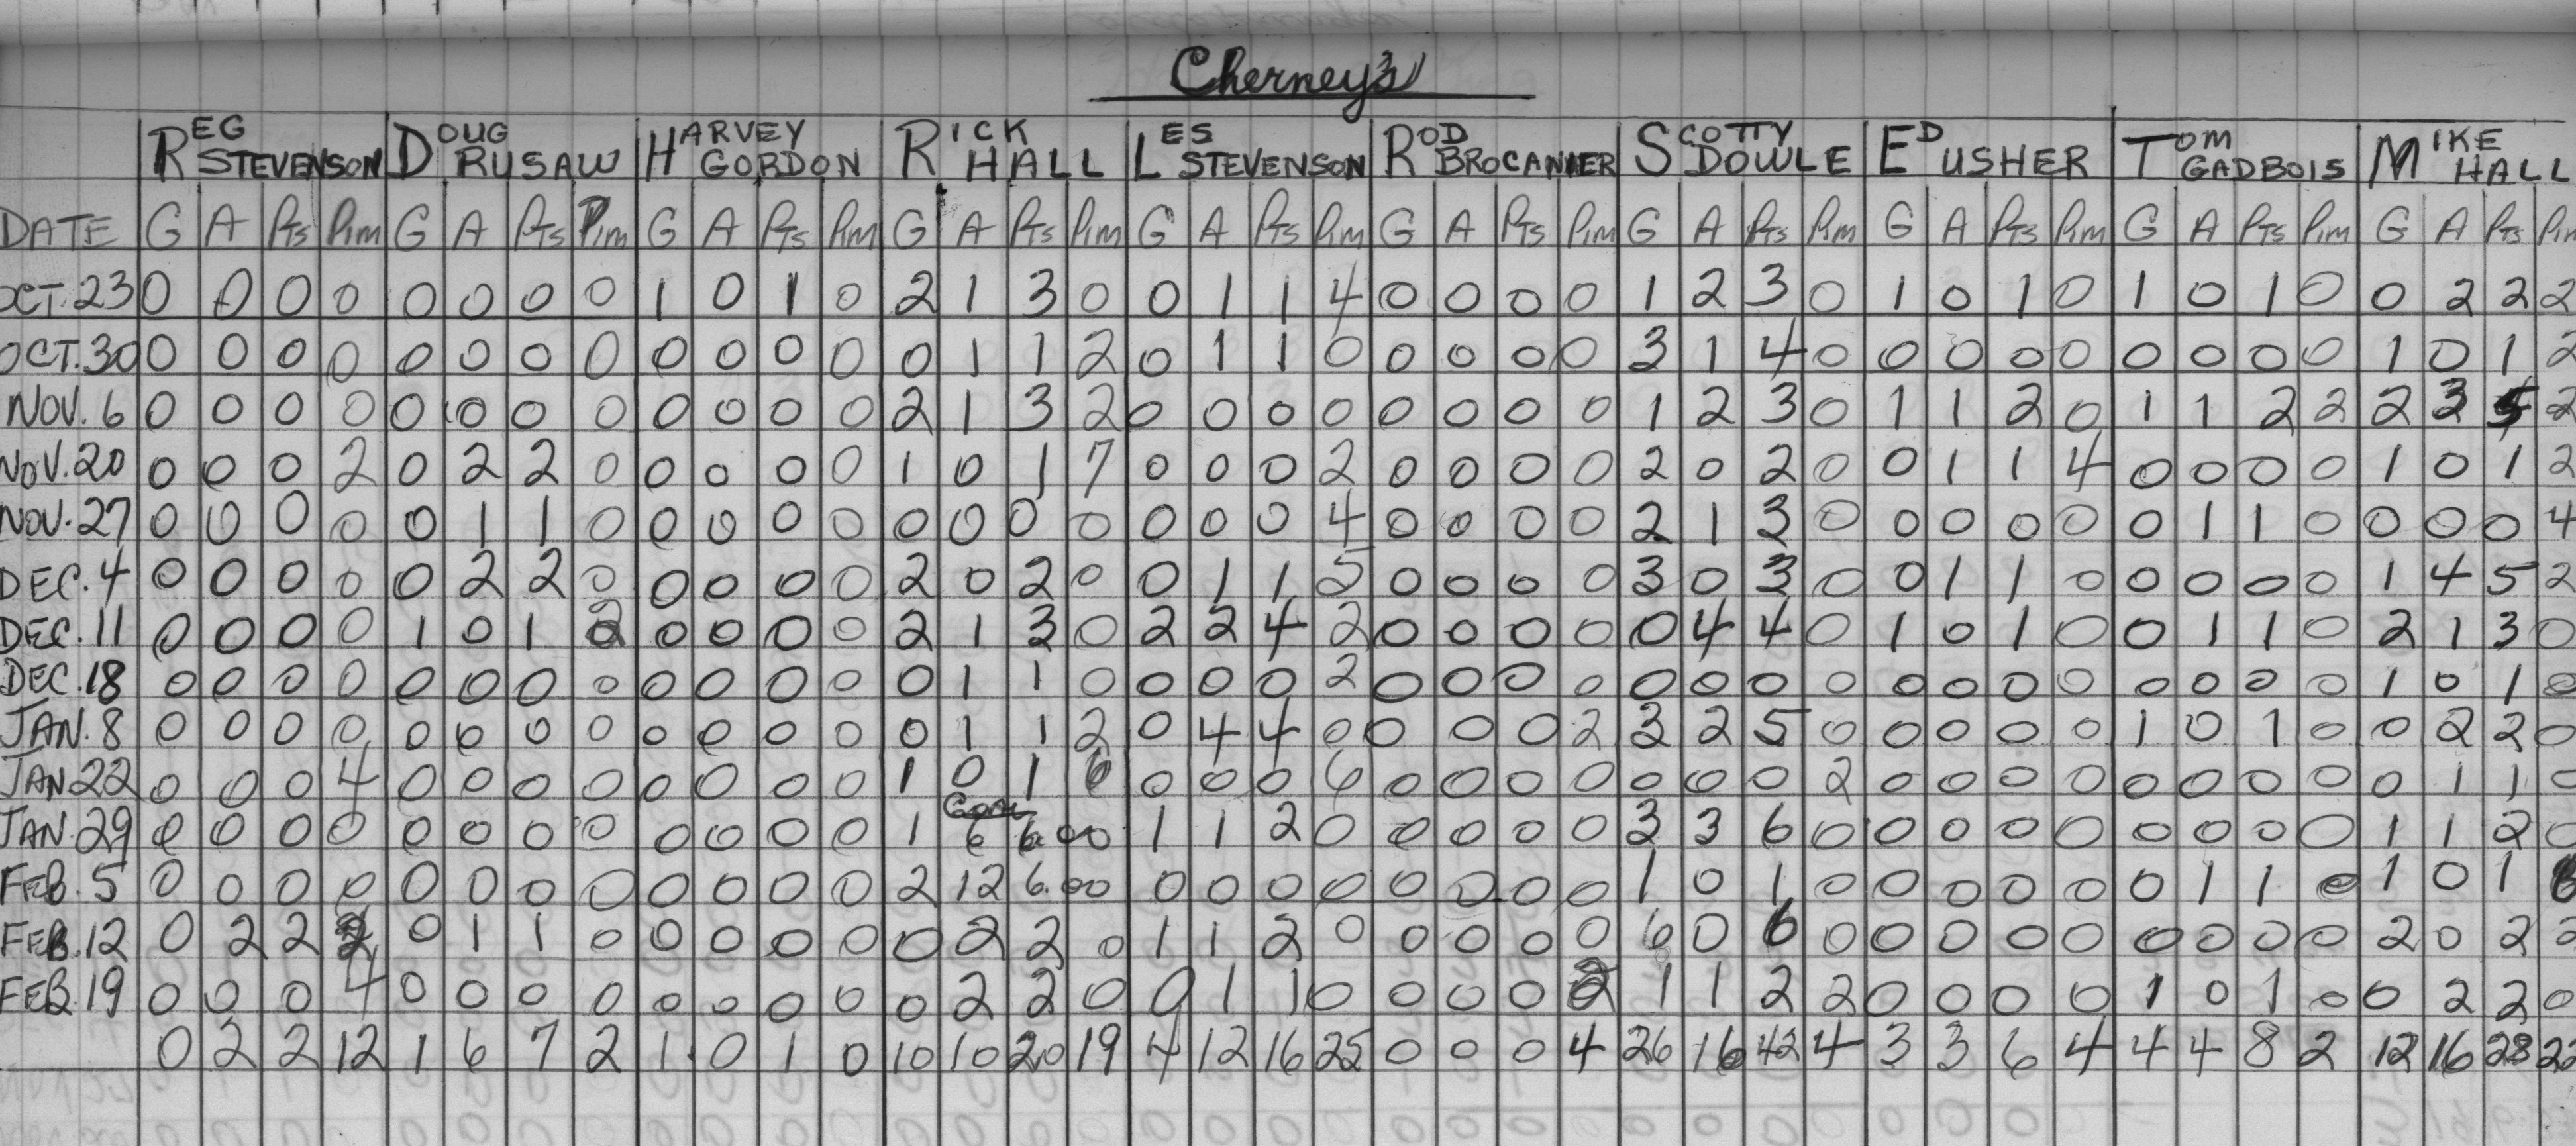 Cherney's
REG STEVENSON DOUG RUSAW HARVEY GORDON RICK HALL LES STEVENSON ROD BROCANIER SCOTTY DOWLE ED USHER TOM GADBOIS MIKE HALL
DATE G A PTS Pim G A PTS Pim G A PTS Pim G A PTS Pim G A PTS Pim G A PTS Pim G A PTS Pim G A PTS Pim G A PTS Pim G A PTS Pim
OCT. 23 0 0 0 0 0 0 0 0 1 0 1 0 2 1 3 0 0 1 1 4 0 0 0 0 1 2 3 0 1 0 1 0 1 0 1 0 0 2 2 2
OCT. 30 0 0 0 0 0 0 0 0 0 0 0 0 0 1 1 2 0 1 1 0 0 0 0 0 3 1 4 0 0 0 0 0 0 0 0 0 1 0 1 2
NOV. 6 0 0 0 0 0 0 0 0 0 0 0 0 2 1 3 2 0 0 0 0 0 0 0 0 1 2 3 0 1 1 2 0 1 1 2 2 2 3 5 2
NOV. 20 0 0 0 2 0 2 2 0 0 0 0 0 1 0 1 7 0 0 0 2 0 0 0 0 2 0 2 0 0 1 1 4 0 0 0 0 1 0 1 2
NOV. 27 0 0 0 0 0 1 1 0 0 0 0 0 0 0 0 0 0 0 0 4 0 0 0 0 2 1 3 0 0 0 0 0 0 1 1 0 0 0 0 4
DEC. 4 0 0 0 0 0 2 2 0 0 0 0 0 2 0 2 0 0 1 1 5 0 0 0 0 3 0 3 0 0 1 1 0 0 0 0 0 1 4 5 2
DEC. 11 0 0 0 0 1 0 1 2 0 0 0 0 2 1 3 0 2 2 4 2 0 0 0 0 0 4 4 0 1 0 1 0 0 1 1 0 2 1 3 0
DEC. 18 0 0 0 0 0 0 0 0 0 0 0 0 0 1 1 0 0 0 0 2 0 0 0 0 0 0 0 0 0 0 0 0 0 0 0 0 1 0 1 0
JAN. 8 0 0 0 0 0 0 0 0 0 0 0 0 0 1 1 2 0 4 4 0 0 0 0 2 3 2 5 0 0 0 0 0 1 0 1 0 0 2 2 0
JAN 22 0 0 0 4 0 0 0 0 0 0 0 0 1 0 1 6 0 0 0 6 0 0 0 0 0 0 0 2 0 0 0 0 0 0 0 0 0 1 1 0
JAN. 29 0 0 0 0 0 0 0 0 0 0 0 0 1 6 6.00 1 1 2 0 0 0 0 0 3 3 6 0 0 0 0 0 0 0 0 0 1 1 2 0
FEB. 5 0 0 0 0 0 0 0 0 0 0 0 0 2 12 6.00 0 0 0 0 0 0 0 0 1 0 1 0 0 0 0 0 0 1 1 0 1 0 1
FEB. 12 0 2 2 2 0 1 1 0 0 0 0 0 0 2 2 0 1 1 2 0 0 0 0 0 6 0 6 0 0 0 0 0 0 0 0 0 2 0 2 2
FEB. 19 0 0 0 4 0 0 0 0 0 0 0 0 0 2 2 0 0 1 1 0 0 0 0 2 1 1 2 2 0 0 0 0 1 0 1 0 0 2 2 0
0 2 2 12 1 6 7 2 1 0 1 0 10 10 20 19 4 12 16 25 0 0 0 4 26 16 42 4 3 3 6 4 4 4 8 2 12 16 28 22